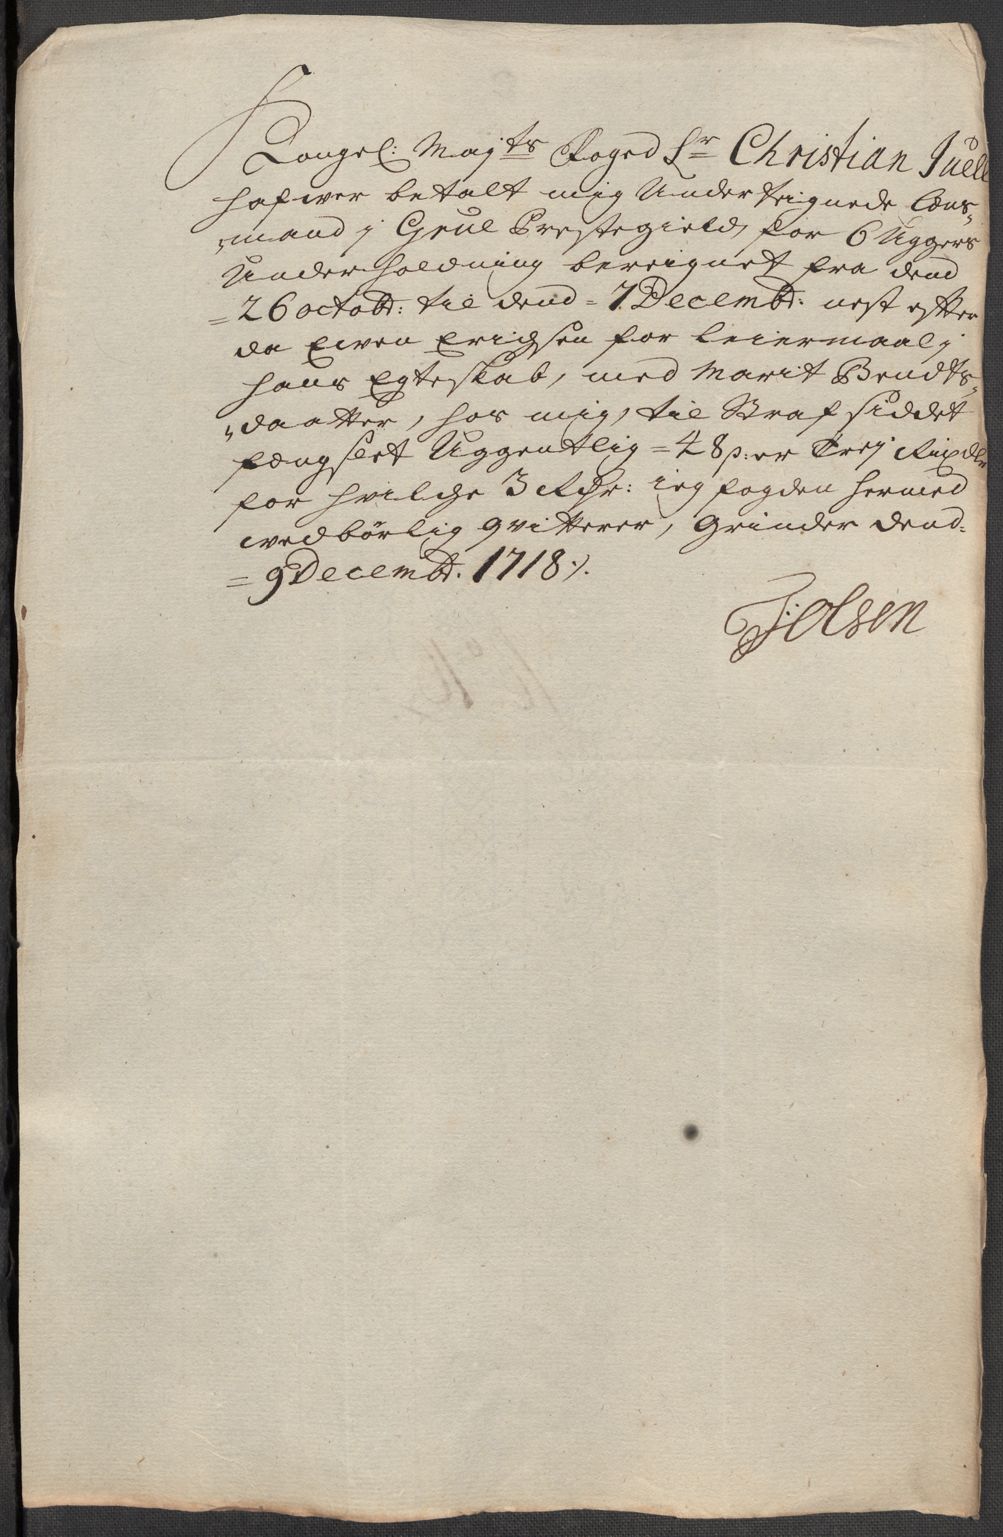 Kongel: Mayts Foged Sr Christian Juell
hafwer betalt mig Underteignede læns„
„mand j Grue Prestegield, for 6 Uggers
Underholdning bereignet fra dend
=26 octobr: til dend =7 Decembr: nest efter
da Ewen Erichsen for leiermaal j
hans Egteskab, med Marit Bendts„
„daatter, hos mig, til Straf siddet
fængslet Uggentlig =48 s: er Trej Rixdlr
for hvilche 3 Rdr: ieg fogden hermed
wedbørlig qvitterer, Grinder dend=
=9 Decembr. 1718 ./.
J: Olsen